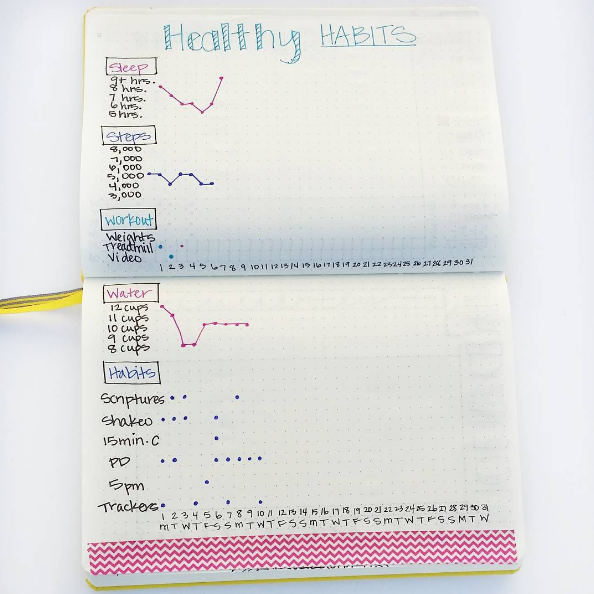 Healthy HABITS
Sleep
9+ hrs.
8 hrs.
7 hrs.
6 hrs.
5 hrs.
Steps
8,000
7,000
6,000
5,000
4,000
3,000
Workout
Weights
Treadmill
Video
1 2 3 4 5 6 7 8 9 10 11 12 13 14 15 16 17 18 19 20 21 22 23 24 25 26 27 28 29 30 31
Water
12 cups
11 cups
10 cups
9 cups
8 cups
Habits
Scriptures
Shakeo
15min. C
PD
5pm
Trackers
1 2 3 4 5 6 7 8 9 10 11 12 13 14 15 16 17 18 19 20 21 22 23 24 25 26 27 28 29 30 31
M T W T F S S M T W T F S S M T W T F S S M T W T F S S M T W